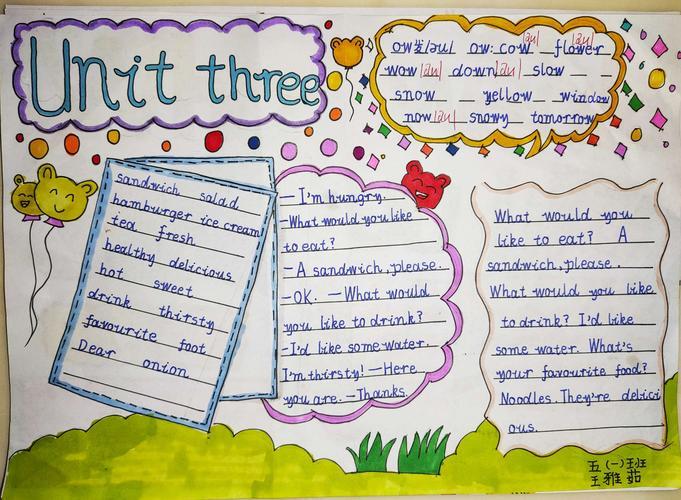 Unit three
ow发/əu/ ow: cow [au] flower [au]
wow [au] down [au] slow
snow yellow window
now [au] snowy tomorrow
sandwich salad
hamburger ice cream
tea fresh
healthy delicious
hot sweet
drink thirsty
favourite foot
Dear onion
— I'm hungry.
—What would you like
to eat?
—A sandwich, please.
—OK. —What would
you like to drink?
—I'd like some water.
I'm thirsty! —Here
you are. —Thanks.
What would you
like to eat? A
sandwich, please.
What would you like
to drink? I'd like
some water. What's
your favourite food?
Noodles. They're delici
ous.
五(一)班
王雅茹